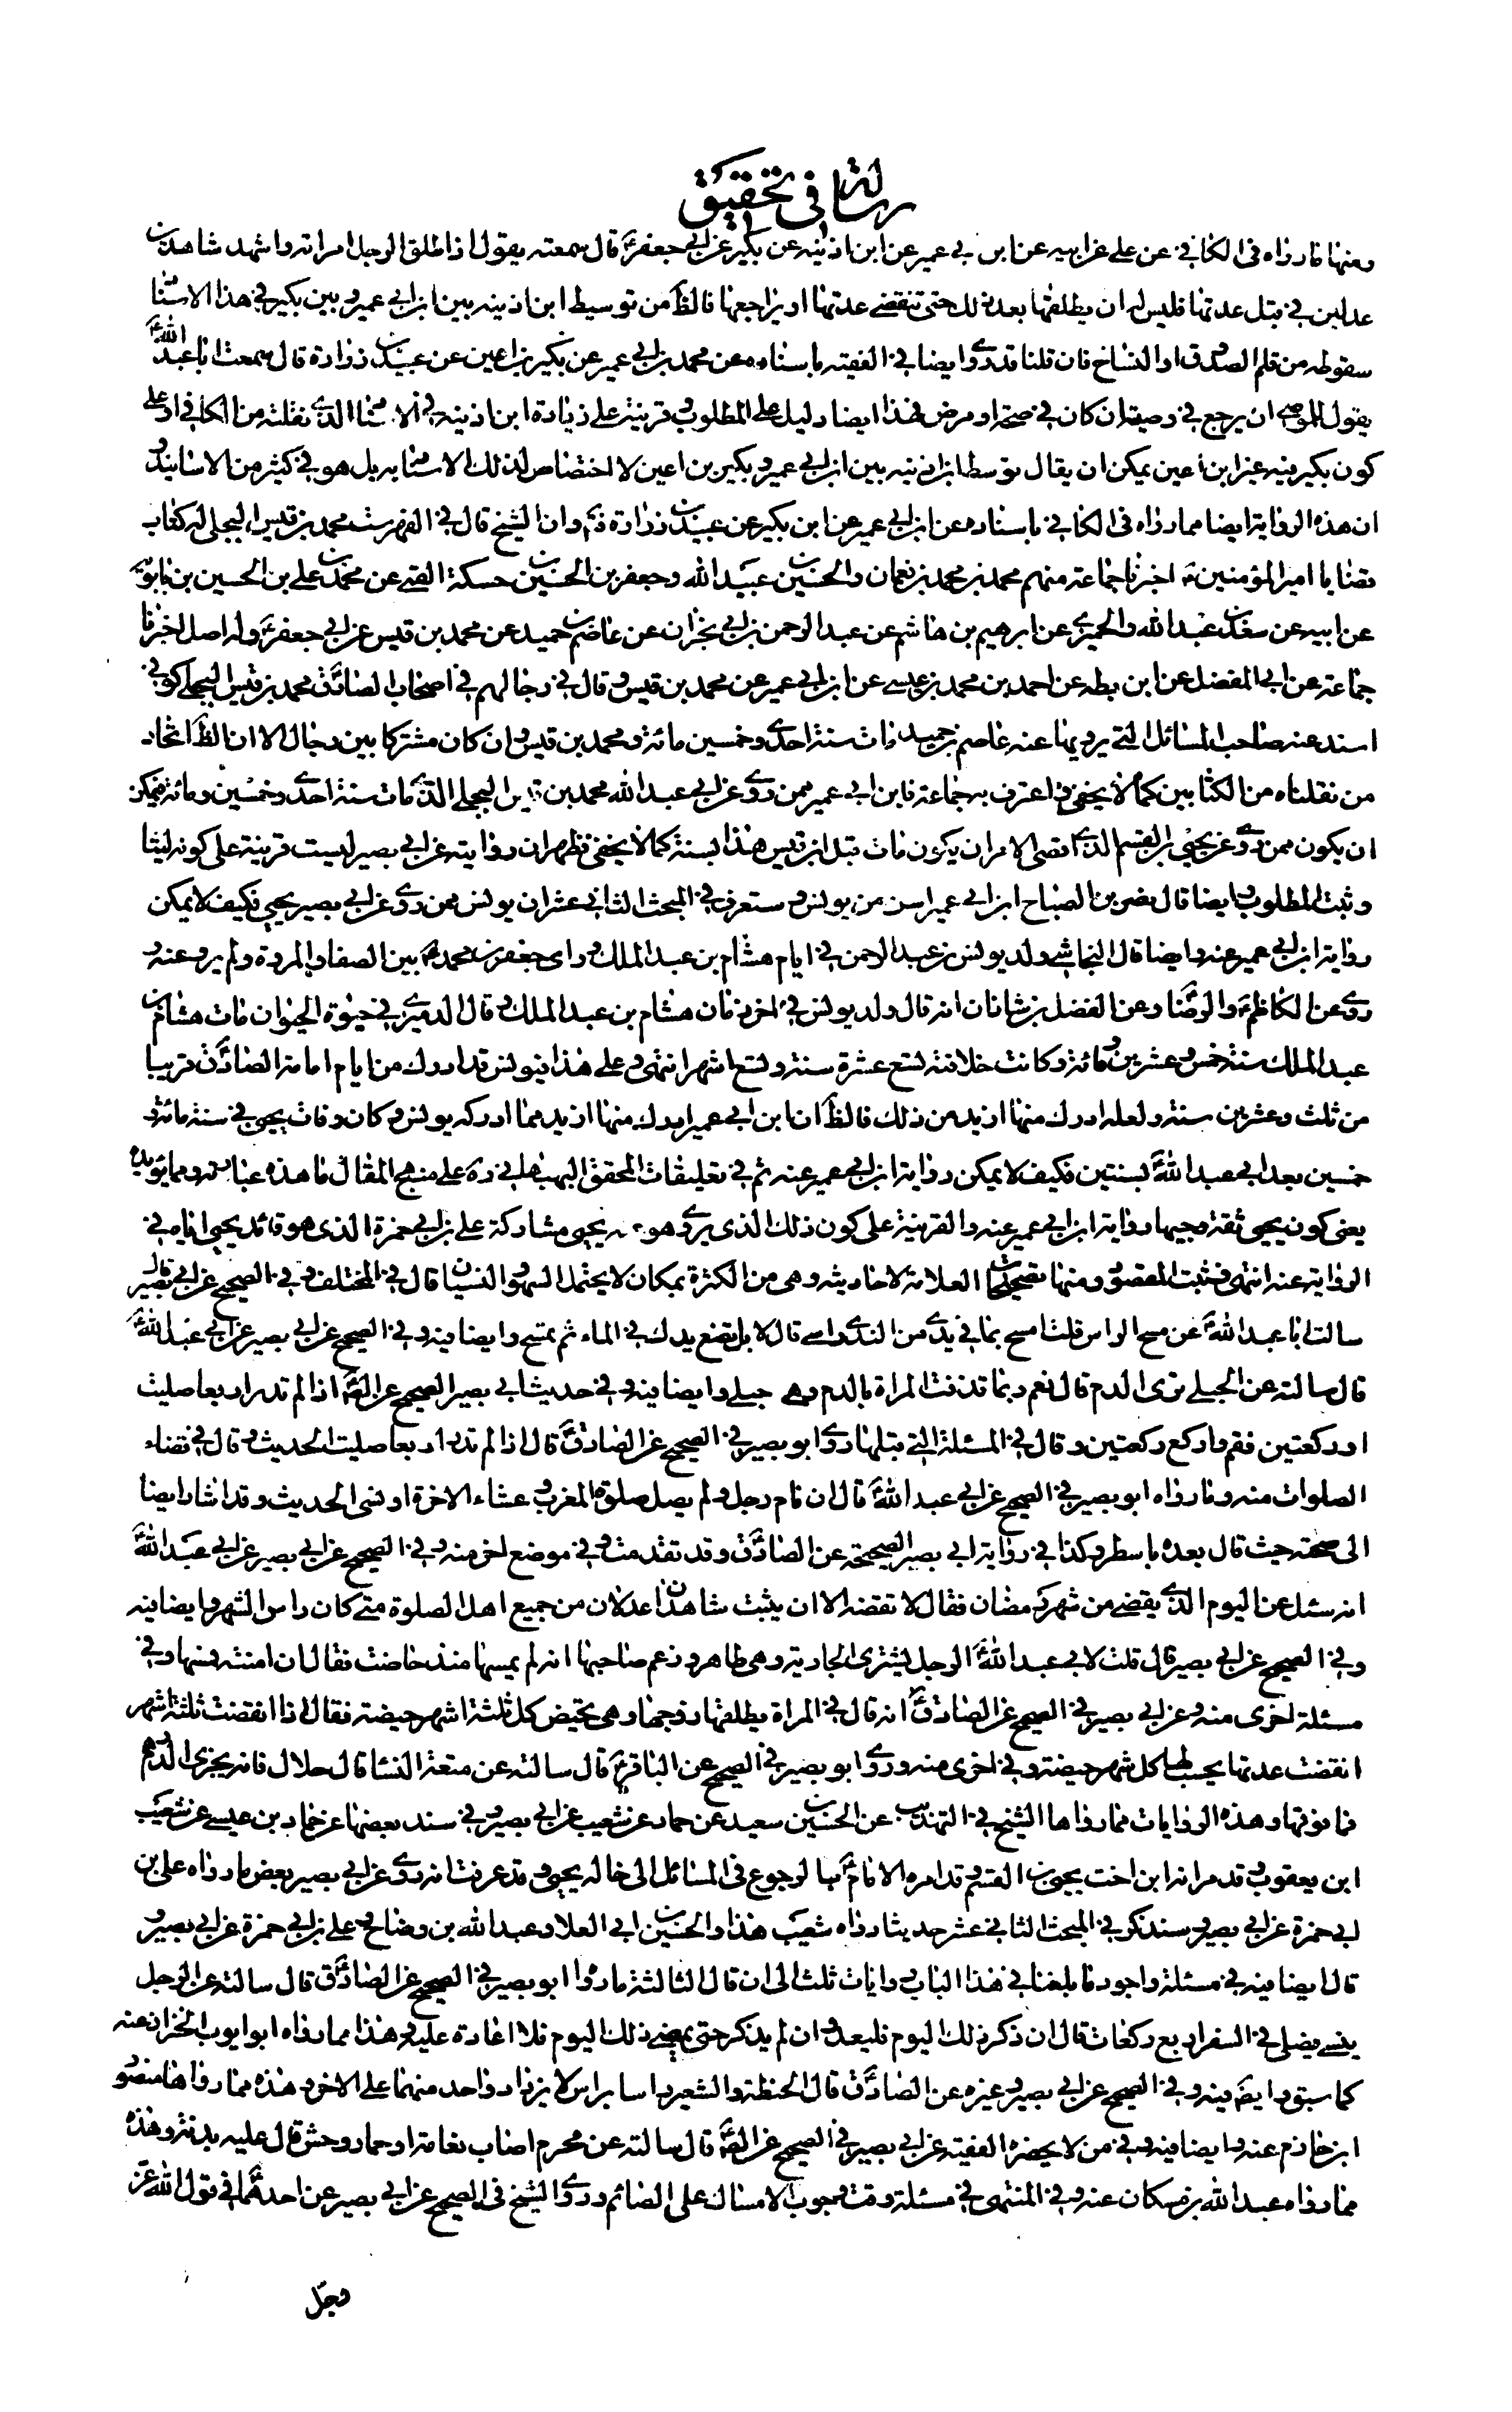 رسالة في تحقيق
ومنها ما رواه في الكافي عن علي عن ابيه عن ابن ابي عمير عن ابن اذينه عن بكير عن ابي جعفرع قال سمعته يقول اذا طلق الرجل امراته واشهد شاهدين
عدلين في قبل عدتها فليس له ان يطلقها بعد ذلك حتى تنقضي عدتها او يراجعها فالظ من توسيط ابن اذينه بين ابن ابي عمير وبين بكير في هذا الاسناد
سقوطه من قلم الصدوق او النساخ فان قلنا قد روى ايضا في الفقيه باسناده عن محمد بن ابي عمير عن بكير بن اعين عن عبيد بن زرارة قال سمعت ابا عبد اللهع
يقول للموصي ان يرجع في وصيته ان كان في صحة او مرض فهذا ايضا دليل على المطلوب وقرينة على زيادة ابن اذينه في الاسناد الذي نقلته من الكافي او على
كون بكير فيه غير ابن اعين يمكن ان يقال توسط ابن اذينه بين ابن ابي عمير وبكير بن اعين لا اختصاص له بذلك الاسناد بل هو في كثير من الاسانيد و
ان هذه الرواية ايضا مما رواه في الكافي باسناده عن ابن ابي عمير عن ابن بكير عن عبيد بن زرارة وان الشيخ قال في الفهرست محمد بن قيس البجلي له كتاب
قضايا امير المؤمنينع اخبرنا جماعة منهم محمد بن محمد بن نعمان والحسين بن عبيد الله وجعفر بن الحسين بن حسكة القمي عن محمد بن علي بن الحسين بن بابويه
عن ابيه عن سعد بن عبد الله والحميري عن ابرهيم بن هاشم عن عبد الرحمن بن ابي نجران عن عاصم بن حميد عن محمد بن قيس عن ابي جعفرع وله اصل اخبرنا
جماعة عن ابي المفضل عن ابن بطه عن احمد بن محمد بن عيسى عن ابن ابي عمير عن محمد بن قيس وقال في رجالهم في اصحاب الصادقع محمد بن قيس البجلي كوفي
اسند عنه صاحب المسائل التي يرويها عنه عاصم بن حميد مات سنة احدى وخمسين مائة ومحمد بن قيس وان كان مشتركا بين رجال الا ان الظ اتحاد
من نقلناه من الكتابين كما لا يخفى واعترف به جماعة فابن ابي عمير ممن روى عن ابي عبد الله محمد بن قيس البجلي الذي مات سنة احدى وخمسين ومائة فيمكن
ان يكون ممن روى عن يحيى بن القسم الذي اقصى الامر ان يكون مات قبل ابن قيس هذا بسنة كما لا يخفى فظهر ان روايته عن ابي بصير ليست قرينة على كونه ليثا
وثبت المطلوب وايضا قال نصر بن الصباح ابن ابي عمير اسن من يونس وستعرف في المبحث الثاني عشر ان يونس ممن روى عن ابي بصير يحيى فكيف لا يمكن
رواية ابن ابي عمير عنه وايضا قال النجاشي ولد يونس بن عبد الرحمن في ايام هشام بن عبد الملك وراى جعفر بن محمدع بين الصفا والمروة ولم يرو عنه و
روى عن الكاظمع والرضاع وعن الفضل بن شاذان انه قال ولد يونس في اخر زمان هشام بن عبد الملك وقال الدميري في حيوة الحيوان مات هشام بن
عبد الملك سنة خمس وعشرين ومائة وكانت خلافته تسع عشرة سنة وتسع اشهر انتهى وعلى هذا فيونس قد ادرك من ايام امامة الصادقع قريبا
من ثلث وعشرين سنة ولعله ادرك منها ازيد من ذلك فالظ ان ابن ابي عمير ادرك منها ازيد مما ادركه يونس وكان وفات يحيى في سنة مائة و
خمسين بعد ابي عبد اللهع بسنتين فكيف لا يمكن رواية ابن ابي عمير عنه ثم في تعليقات المحقق البهبهاني ره على منهج المقال ما هذه عبارته ومما يؤيده
يعني كون يحيى ثقة وجيها رواية ابن ابي عمير عنه والقرينة على كون ذلك الذي يروى هو عنه يحيى مشاركة علي بن ابي حمزة الذي هو قائد يحيى اياه في
الرواية عنه انتهى فثبت المقصود ومنها تصحيحات العلامة لاحاديثه وهي من الكثرة بمكان لا يحتمل السهو والنسيان قال في المختلف وفي الصحيح عن ابي بصير قال
سالت ابا عبد اللهع عن مسح الراس قلت امسح بما في يدي من الندى راسي قال لا بل تضع يدك في الماء ثم تمسح وايضا فيه وفي الصحيح عن ابي بصير عن ابي عبد اللهع
قال سالته عن الحبلى ترى الدم قال نعم ربما قذفت المراة بالدم وهي حبلى وايضا فيه وفي حديث ابي بصير الصحيح عن الصع اذا لم تدر اربعا صليت
او ركعتين فقم واركع ركعتين وقال في المسئلة التي قبلها روى ابو بصير في الصحيح عن الصادقع قال اذا لم تدر اربعا صليت الحديث وقال في قضاء
الصلوات منه وما رواه ابو بصير في الصحيح عن ابي عبد اللهع قال ان نام رجل ولم يصل صلوة المغرب وعشاء الاخرة او نسي الحديث وقد اشار ايضا
الى صحته حيث قال بعده باسطر وكذا في رواية ابي بصير الصحيحة عن الصادقع وقد تقدمت وفي موضع اخر منه وفي الصحيح عن ابي بصير عن ابي عبد اللهع
انه سئل عن اليوم الذي يقضي من شهر رمضان فقال لا تقضه الا ان يثبت شاهدان عدلان من جميع اهل الصلوة متى كان راس الشهر وايضا فيه
وفي الصحيح عن ابي بصير قال قلت لابي عبد اللهع الرجل يشتري الجارية وهي طاهر وزعم صاحبها انه لم يمسها منذ حاضت فقال ان امنته فمسها وفي
مسئلة اخرى منه وعن ابي بصير في الصحيح عن الصادقع انه قال في المراة يطلقها زوجها وهي تحيض كل ثلثة اشهر حيضة فقال اذا انقضت ثلثة اشهر
انقضت عدتها يحسب لها كل شهر حيضة وفي اخرى منه وروى ابو بصير في الصحيح عن الباقرع قال سالته عن متعة النساء قال حلال فانه يجزى الدرهم
فما فوقها وهذه الروايات مما رواها الشيخ في التهذيب عن الحسين بن سعيد عن حماد عن شعيب عن ابي بصير وفي سند بعضها عن حماد بن عيسى عن شعيب
ابن يعقوب وقد مر انه ابن اخت يحيى بن القسم وقد امره الامامع بالرجوع في المسائل الى خاله يحيى وقد عرفت انه روى عن ابي بصير بعض ما رواه علي بن
ابي حمزة عن ابي بصير وسنذكر في المبحث الثاني عشر حديثا رواه شعيب هذا والحسين بن ابي العلا وعبد الله بن وضاح وعلي بن ابي حمزة عن ابي بصير و
قال ايضا فيه في مسئلة واجود ما بلغنا في هذا الباب روايات ثلث الى ان قال الثالثة ما روا ابو بصير في الصحيح عن الصادقع قال سالته عن الرجل
ينسى فيصلي في السفر اربع ركعات قال ان ذكر في ذلك اليوم فليعد وان لم يذكر حتى يمضي ذلك اليوم فلا اعادة عليه وهذا مما رواه ابو ايوب الخزاز عنه
كما سبق وايض فيه وفي الصحيح عن ابي بصير وغيره عن الصادقع قال الحنطة والشعير راسا براس لا يزاد واحد منهما على الاخر وهذه مما رواها منصور
ابن حازم عنه وايضا فيه وفي من لا يحضره الفقيه عن ابي بصير في الصحيح عن الصع قال سالته عن محرم اصاب نعامة او حمار وحش قال عليه بدنة وهذه
مما رواه عبد الله بن مسكان عنه وفي المنتهى في مسئلة وقت وجوب الامساك على الصائم وروى الشيخ في الصحيح عن ابي بصير عن احدهماع في قول الله عز
وجل